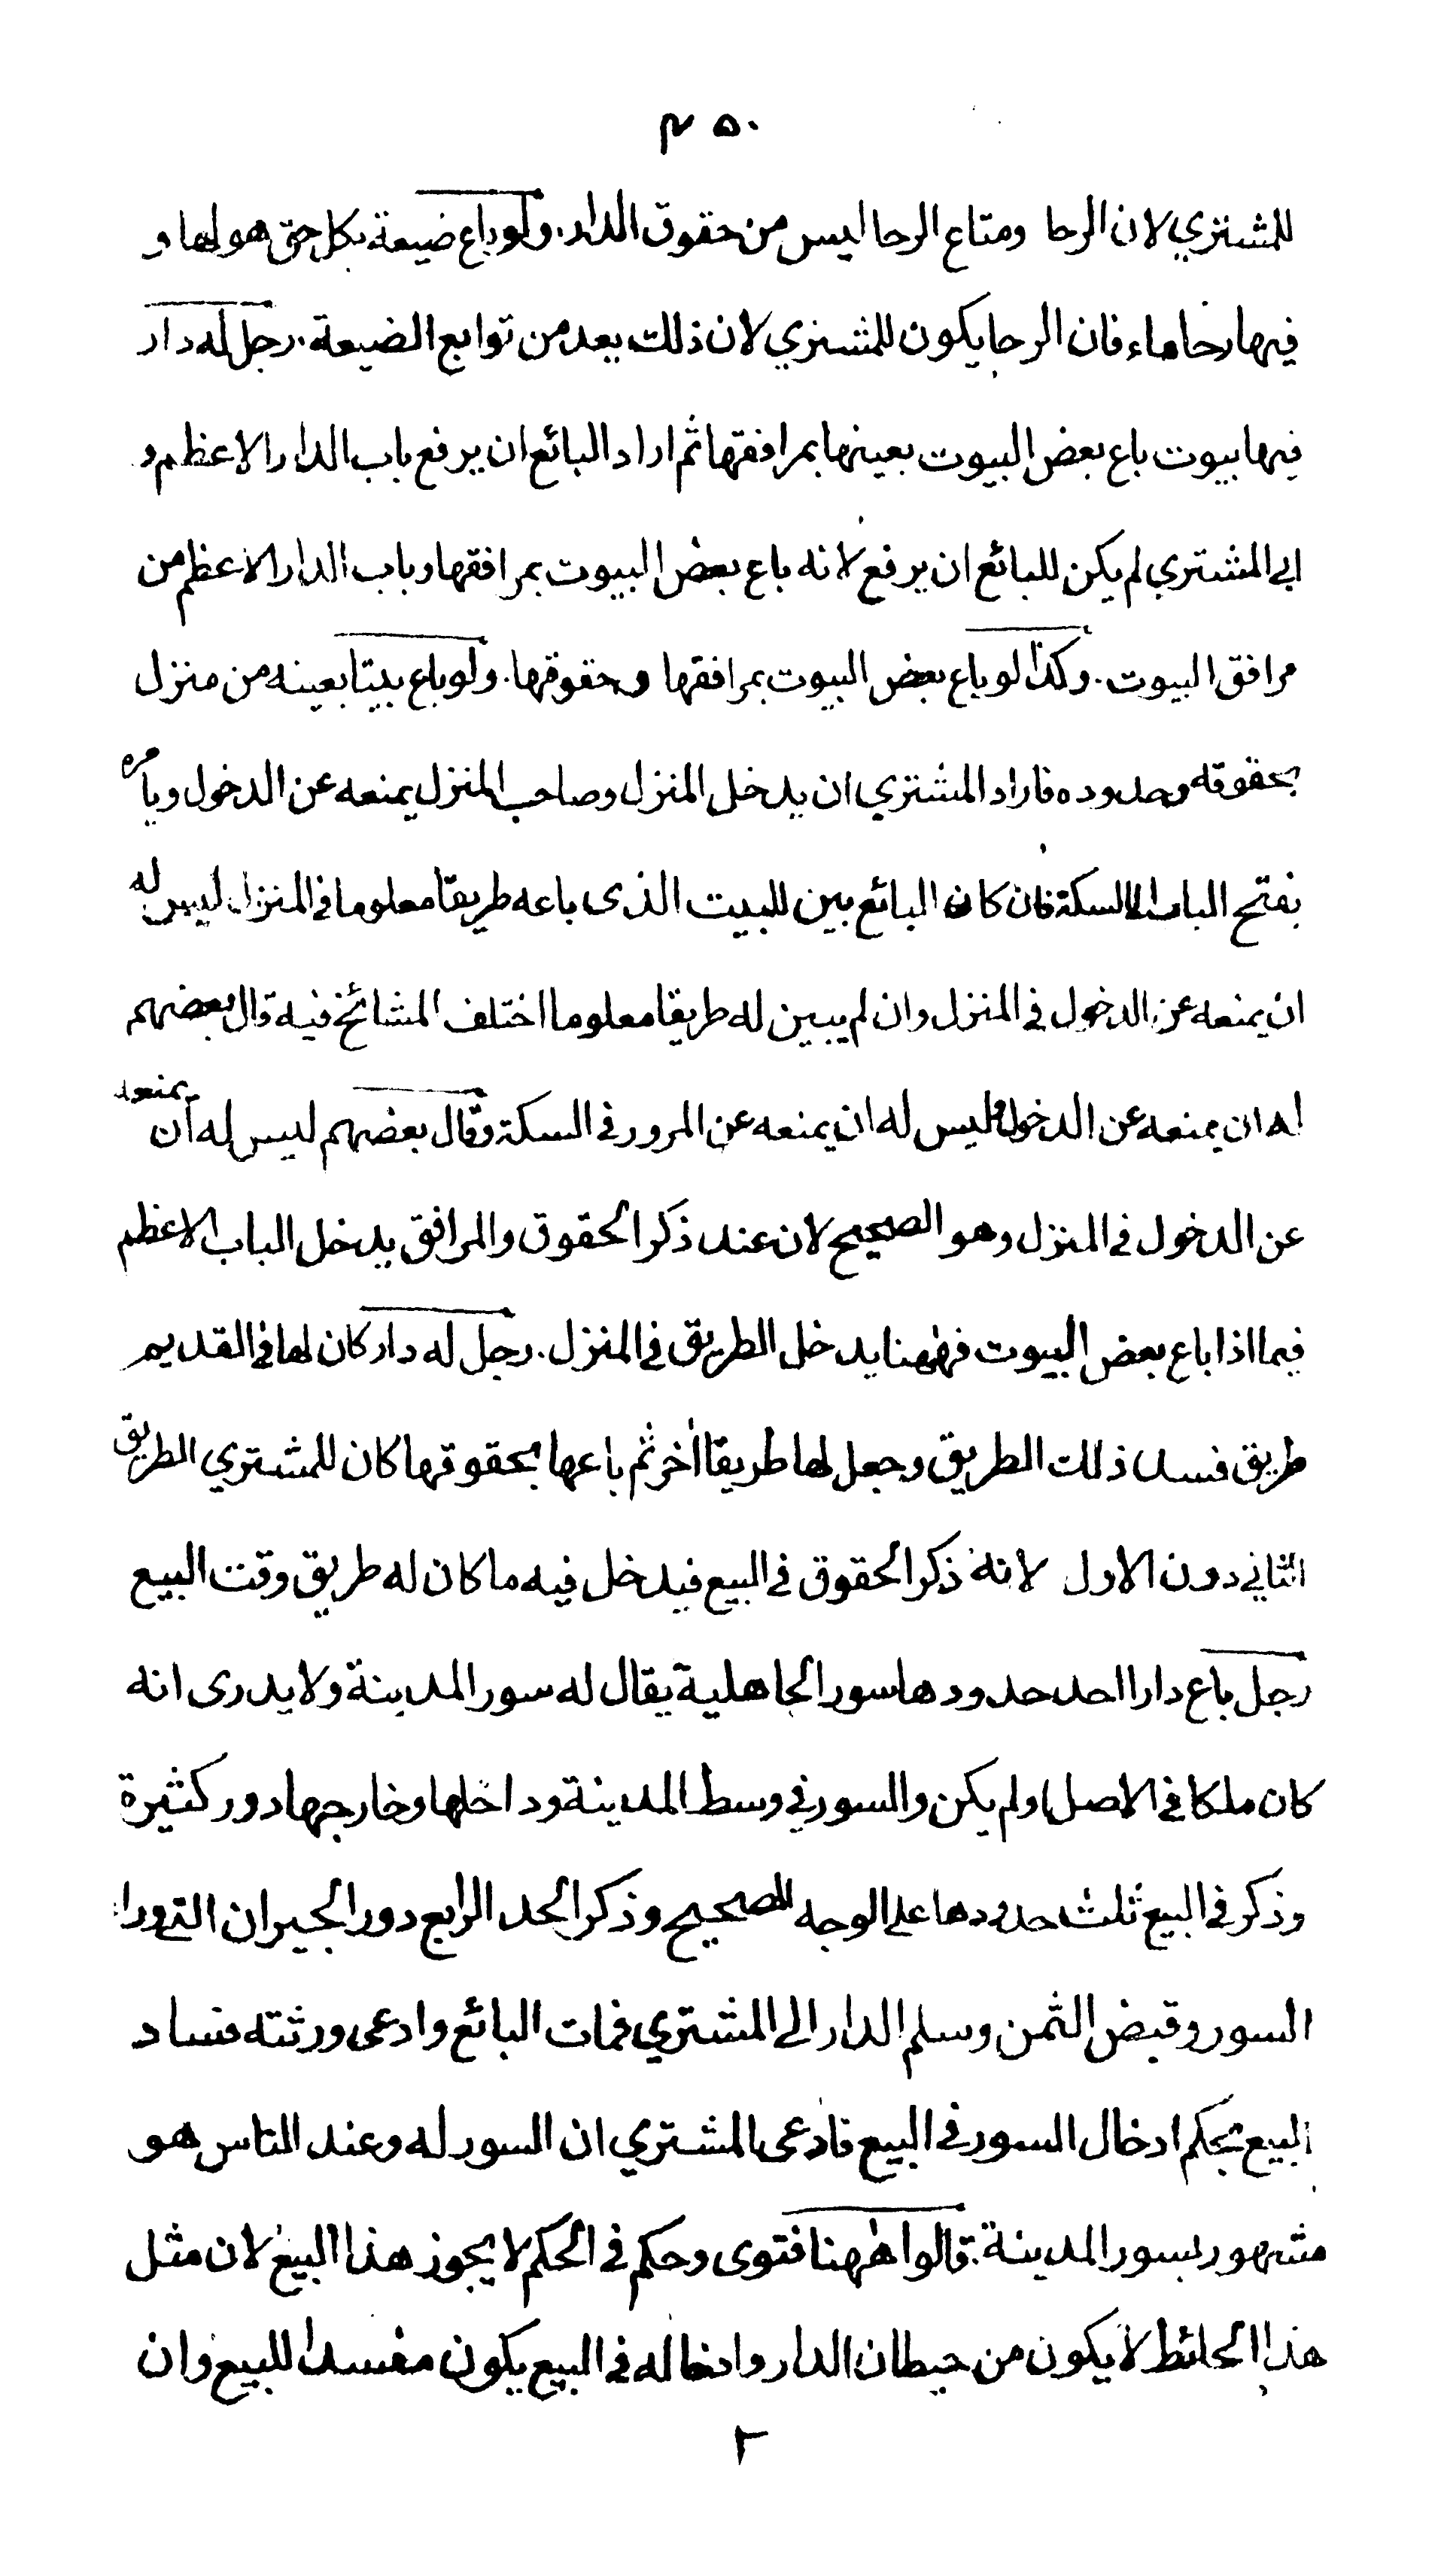 ٤٥٠
للمشتري لان الرحا ومتاع الرحا ليس من حقوق الدار. ولو باع ضيعة بكل حق هو لها و
فيها رحا ماء فان الرحا يكون للمشتري لان ذلك يعد من توابع الضيعة. رجل له دار
فيها بيوت باع بعض البيوت بعينها بمرافقها ثم اراد البائع ان يرفع باب الدار الاعظم و
ابى المشتري لم يكن للبائع ان يرفع لانه باع بعض البيوت بمرافقها وباب الدار الاعظم من
مرافق البيوت. وكذا لو باع بعض البيوت بمرافقها وحقوقها. ولو باع بيتا بعينه من منزل
بحقوقه وحدوده فاراد المشتري ان يدخل المنزل وصاحب المنزل يمنعه عن الدخول ويأمره
بفتح الباب الى السكة فان كان البائع بين للبيت الذى باعه طريقا معلوما في المنزل ليس له
ان يمنعه عن الدخول في المنزل وان لم يبين له طريقا معلوما اختلف المشائخ فيه قال بعضهم
له ان يمنعه عن الدخول وليس له ان يمنعه عن المرور في السكة وقال بعضهم ليس له ان يمنعه
عن الدخول في المنزل وهو الصحيح لان عند ذكر الحقوق والمرافق يدخل الباب الاعظم
فيما اذا باع بعض البيوت فههنا يدخل الطريق في المنزل. رجل له دار كان لها في القديم
طريق فسد ذلك الطريق وجعل لها طريقا اخر ثم باعها بحقوقها كان للمشتري الطريق
الثاني دون الاول لانه ذكر الحقوق في البيع فيدخل فيه ما كان له طريق وقت البيع
رجل باع دارا احد حدودها سور الجاهلية يقال له سور المدينة ولا يدرى انه
كان ملكا في الاصل او لم يكن والسور في وسط المدينة وداخلها وخارجها دور كثيرة
وذكر في البيع ثلث حدودها على الوجه الصحيح وذكر الحد الرابع دور الجيران التى وراء
السور وقبض الثمن وسلم الدار الى المشتري فمات البائع وادعى ورثته فساد
البيع بحكم ادخال السور في البيع فادعى المشتري ان السور له وعند الناس هو
مشهور بسور المدينة. قالوا ههنا فتوى وحكم في الحكم لا يجوز هذا البيع لان مثل
هذا الحائط لا يكون من حيطان الدار وادخاله في البيع يكون مفسدا للبيع وان
٢